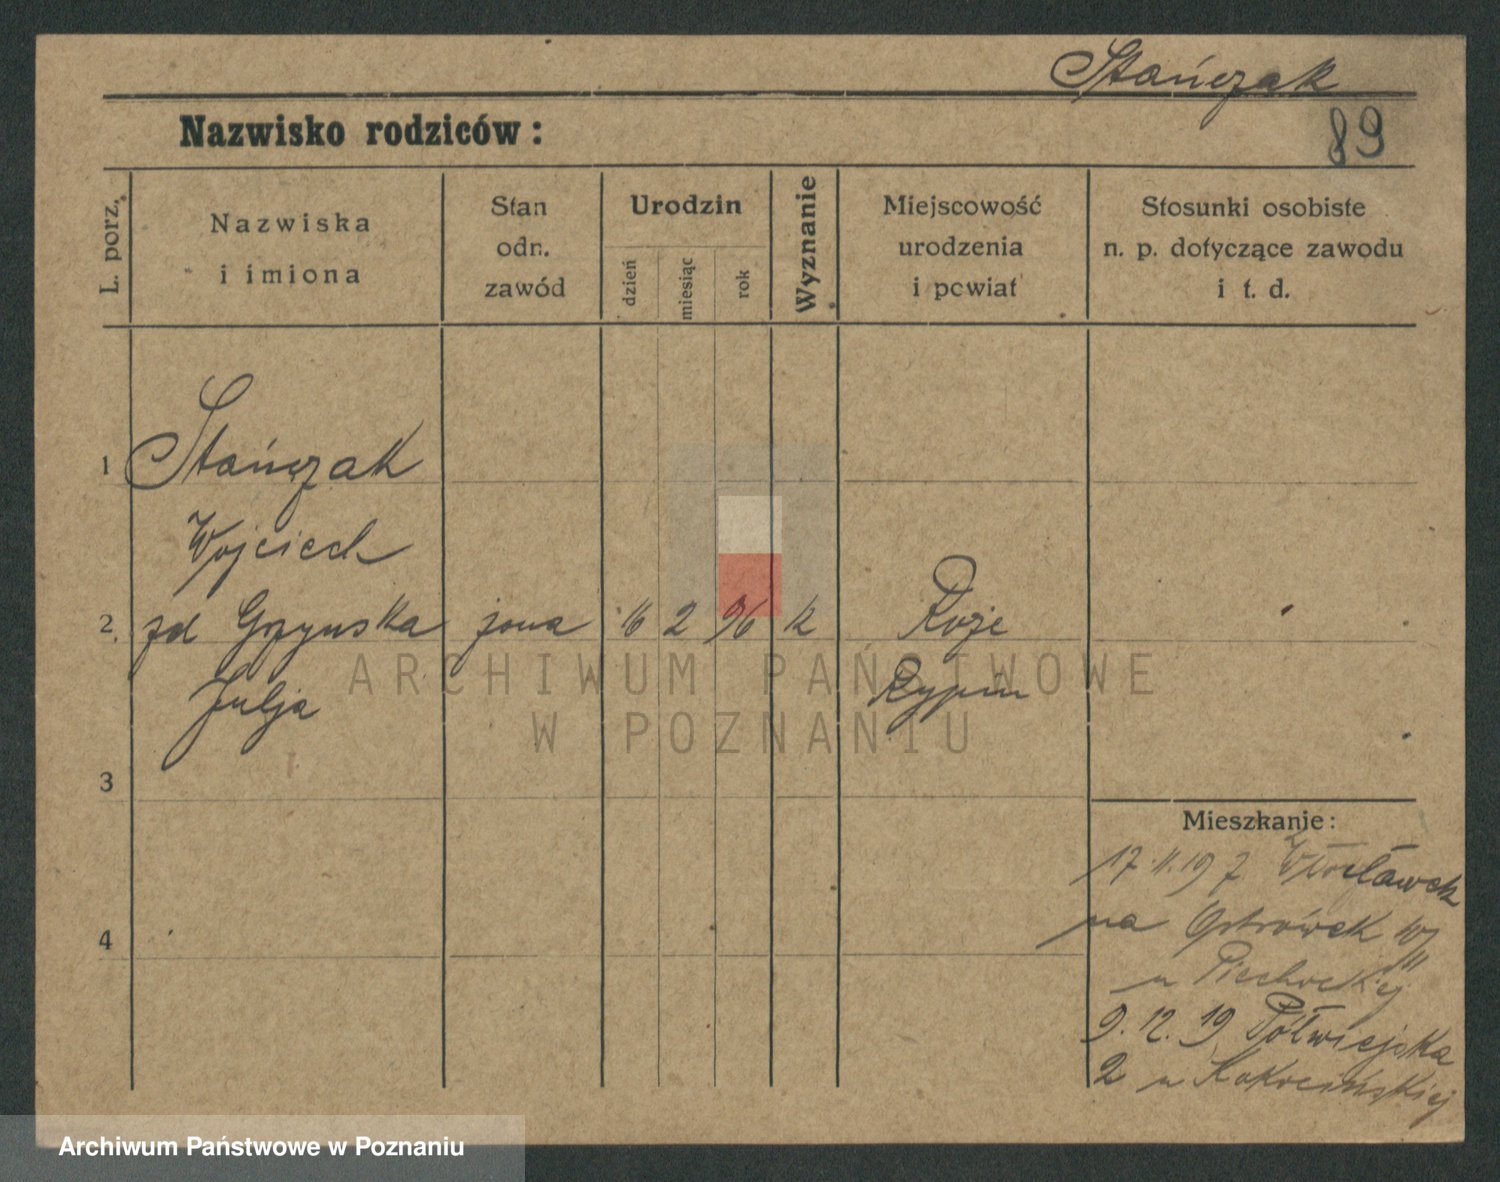 Stańczak
Nazwisko rodziców:
89
L. porz.
Nazwiska
i imiona
Stan
odn.
zawód
Urodzin
dzień
miesiąc
rok
Wyznanie
Miejscowość
urodzenia
i powiat
Stosunki osobiste
n. p. dotyczące zawodu
i t. d.
1
Stańczak
Wojciech
2
zd Gpzynska żona 16 2 96 k Róże
Julja Rypin
3
4
Mieszkanie:
17.11.19 z Włocławek
na Ostrówek 10/11
u Piechockiej
9.12.19 Półwiejska
2 u Kokocińskiej
ARCHIWUM PAŃSTWOWE
W POZNANIU
Archiwum Państwowe w Poznaniu